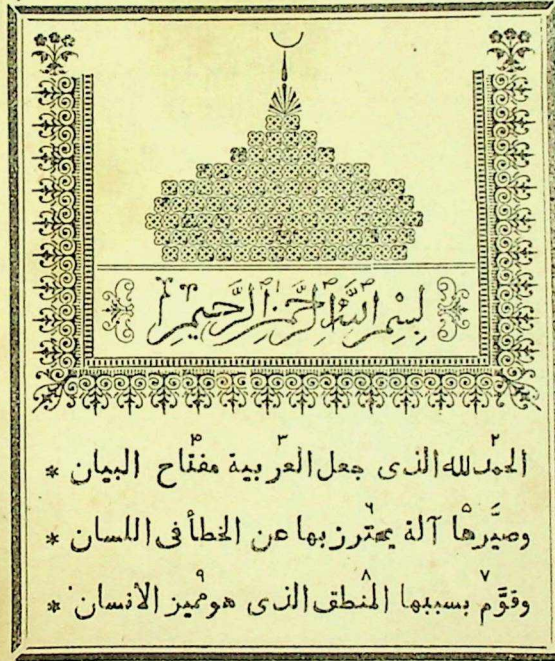 بِسْمِ اللّٰهِ الرَّحْمٰنِ الرَّحِيْمِ ١
الحمد٢ لله الذى جعل العر٣بية مفتاح٤ البيان *
وصيَّرها٥ آلة يحترز٦ بها عن الخطأ فى اللسان *
وقوَّم٧ بسببها المنطق٨ الذى هو مميز٩ الانسان *